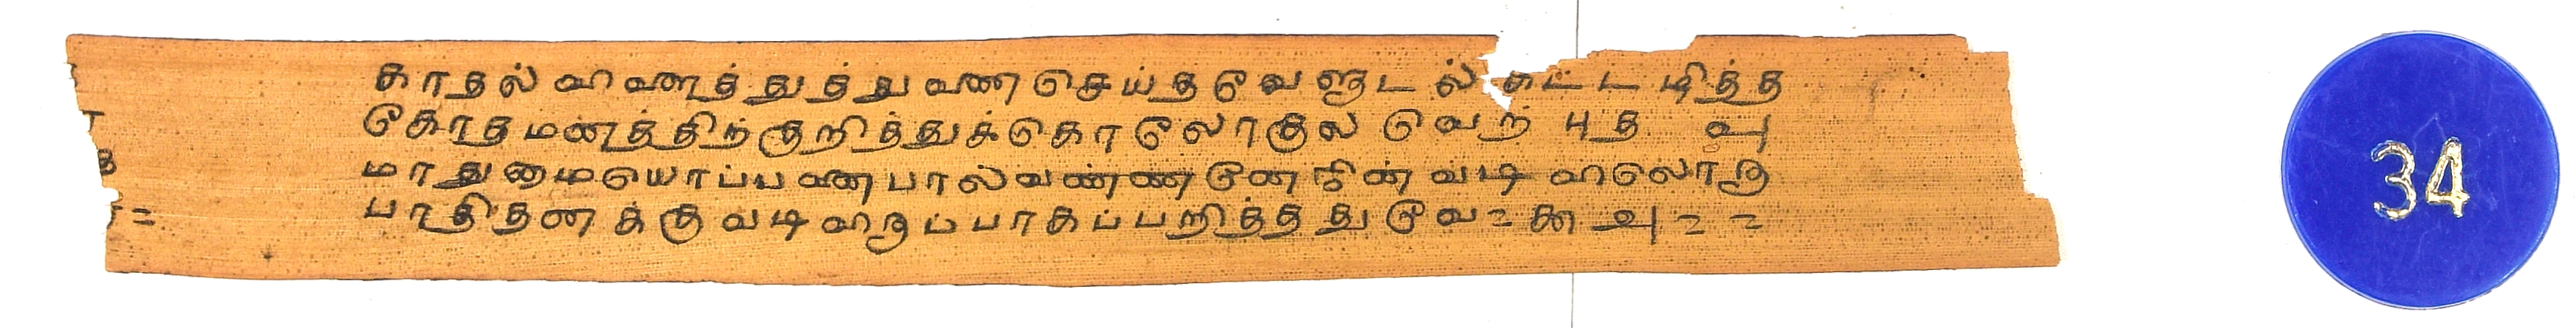 காதல் விளைத்துத்துணை செய்த வேளுடல் கட்டழித்த
கோதமனத்திற்குறித்துக்கொலோகுல வெற்புத வு
மாதுமையொப்பனை பால்வண்ணனேநின் வடிவிலொரு
பாதிதனக்கு வடிவிருப்பாகப்பறித்ததுவே = ௯ வு = =
34